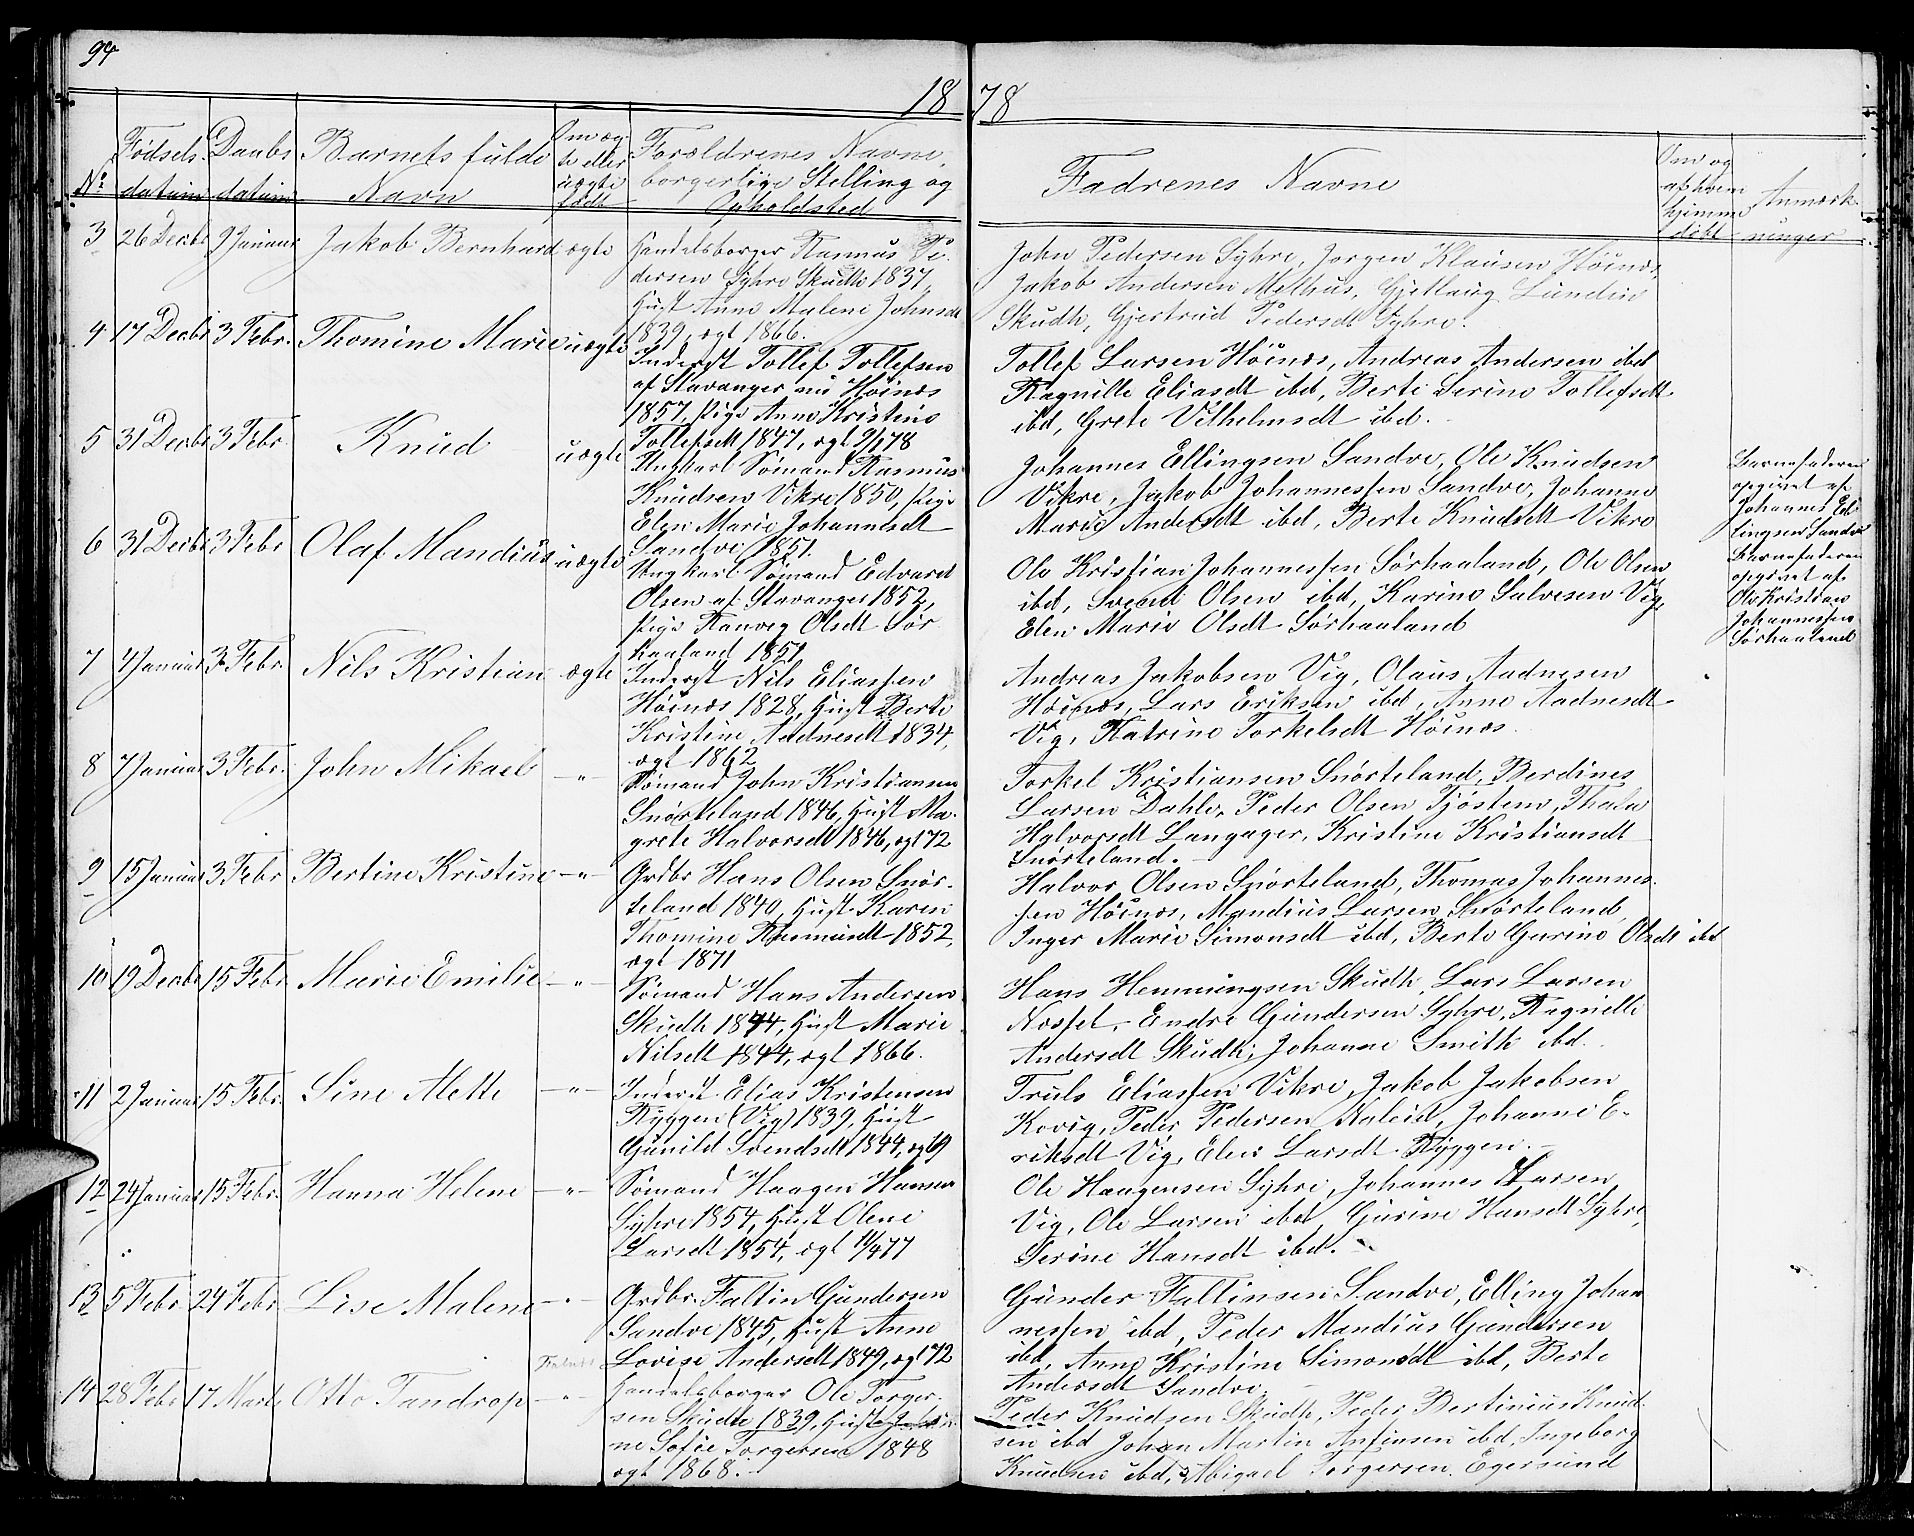 94
18
78
No
Fødsels
datum
Daabs
datum
Barnets fulde
Navn
Om æg-
te eller
uægte
født
Forældrenes Navne,
borgerlige Stilling og
Opholdsted
Fadrenes Navne
Om og
af hvem
hjemme
døbt
Anmærk-
ninger
3 26 Decbr 9 Januar Jakob Bernhard ægte
Handelsborger Rasmus Pe-
dersen Syhre Skudh 1837,
Hust Anne Malene Johnsdt
1839, ægt 1866.
John Pedersen Syhre, Jørgen Klausen Høines,
Jakob Andersen Methus, Gjetlaug Lundin
Skudh, Gjertrud Pedersdt Syhre.
4 17 Decbr 3 Febr. Thomine Marie uægte
Inderst Tollef Tollefsen
af Stavanger nu Høines
1857, Pige Anne Kristine
Tollefsdt 1847, ægt 9/1 78
Tollef Larsen Høines, Andreas Andersen ibd
Ragnille Eliasdt ibd, Berte Serine Tollefsdt
ibd, Grete Vilhelmsdt ibd.
5 31 Decbr 3 Febr Knud uægte
Ungkarl Sømand Rasmus
Knudsen Vikre 1850, Pige
Elen Marie Johannesdt
Sandve 1851.
Johannes Ellingsen Sandve, Ole Knudsen
Vikre, Jakob Johannessen Sandve, Johanne
Marie Andersdt ibd, Berte Knudsdt Vikre
Barnefaderen
opgivet af
Johannes El-
lingsen Sandve
6 31 Decbr 3 Febr Olaf Mandius uægte
Ungkarl Sømand Edvard
Olsen af Stavanger 1852,
Pige Ranveg Olsdt Sør-
haaland 1851
Ole Kristian Johannessen Sørhaaland, Ole Olsen
ibd, Svend Olsen ibd, Karine Salvesen Vig,
Elen Marie Olsdt Sørhaaland
Barnefaderen
opgivet af
Ole Kristian
Johannessen
Sørhaaland
7 4 Januar 3 Febr. Nils Kristian ægte
Inderst Nils Eliassen
Høines 1828, Hust Berte
Kristine Aadnesdt 1834,
ægt 1862
Andreas Jakobsen Vig, Olaus Aadnesen
Høines, Lars Eriksen ibd, Anne Aadnesdt
Vig, Katrine Torkelsdt Høines.
8 7 Januar 3 Febr. John Mikael -"-
Sømand John Kristiansen
Snørteland 1846, Hust Ma-
grete Halvorsdt 1846, ægt 72
Torkel Kristiansen Snørteland, Berdines
Larsen Dahle, Peder Olsen Tjøsten, Thala
Halvorsdt Langager, Kristine Kristiansdt
Snørteland.
9 15 Januar 3 Febr Bertine Kristine -"-
Grdbr Hans Olsen Snør-
teland 1840, Hust Karen
Thomine Rasmusdt 1852,
ægt 1871
Halvor Olsen Snørteland, Thomas Johannes-
sen Høines, Mandius Larsen Snørteland,
Inger Marie Simonsdt ibd, Berte Gurine Olsdt ibd
10 19 Decbr 15 Febr Marie Emilie -"-
Sømand Hans Andersen
Skudh 1844, Hust Marie
Nilsdt 1844, ægt 1866.
Hans Hemmingsen Skudh, Lars Larsen
Nesset, Endre Gundersen Syhre, Ragnille
Andersdt Skudh, Johanne Smith ibd.
11 2 Januar 15 Febr. Sine Alette -"-
Inderst Elias Kristensen
Ryggen (Vig) 1839, Hust
Gunild Svendsdt 1844, ægt 69
Truls Eliassen Vikre, Jakob Jakobsen
Kovig, Peder Pedersen Naleid, Johanne E-
riksdt Vig, Elen Larsdt Ryggen.
12 24 Januar 15 Febr. Hanna Helene -"-
Sømand Haagen Hansen
Syhre 1854, Hust Olene
Larsdt 1854, ægt 11/4 77
Ole Haagensen Syhre, Johannes Larsen
Vig, Ole Larsen ibd, Gurine Hansdt Syhre,
Serine Hansdt ibd.
13 5 Febr 24 Febr. Lise Malene -"-
Grdbr. Faltin Gundersen
Sandve 1845, Hust Anne
Lovise Andersdt 1849, ægt 72
Gunder Faltinsen Sandve, Elling Johan-
nessen ibd, Peder Mandius Gundersen
ibd, Anne Kristine Simonsdt ibd, Berte
Andersdt Sandve.
14 28 Febr 17 Marts Otto Tandrop -"-
Handelsborger Ole Torger-
sen Skudh 1839, Hust
ne Sofie Torgersen 1848
ægt 1868.
Peder Knudsen Skudh, Peder Bertinius Knud-
sen ibd Johan Martin Anfinsen ibd, Ingeborg
Knudsen ibd, Abigael Torgersen Egersund